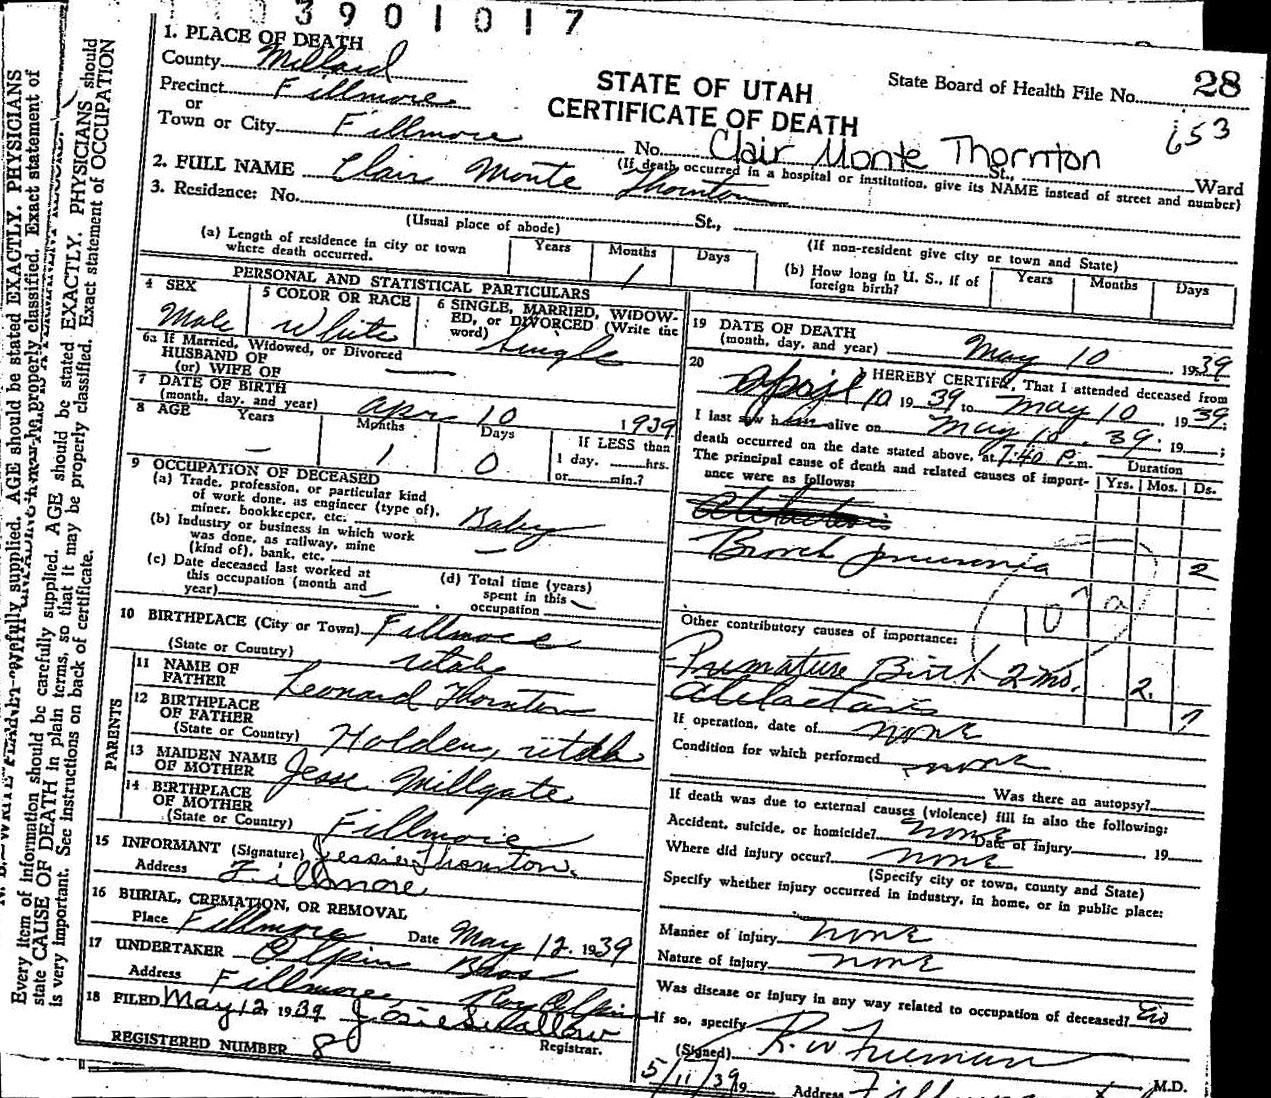 3901017
1. PLACE OF DEATH
County Millard
Precinct Fillmore
or
Town or City Fillmore
STATE OF UTAH
CERTIFICATE OF DEATH
State Board of Health File No. 28
653
No. Clair Monte Thornton St., Ward
(If death occurred in a hospital or institution, give its NAME instead of street and number)
2. FULL NAME Clair Monte Thornton
3. Residence: No. St.,
(Usual place of abode)
(If non-resident give city or town and State)
(a) Length of residence in city or town where death occurred. Years Months 1 Days
(b) How long in U. S., if of foreign birth? Years Months Days
PERSONAL AND STATISTICAL PARTICULARS
4 SEX Male
5 COLOR OR RACE White
6 SINGLE, MARRIED, WIDOWED, or DIVORCED (Write the word) Single
6a If Married, Widowed, or Divorced
HUSBAND OF
(or) WIFE OF —
7 DATE OF BIRTH
(month, day, and year) Apr 10 1939
8 AGE Years — Months 1 Days 0 If LESS than 1 day, hrs. or min.?
9 OCCUPATION OF DECEASED
(a) Trade, profession, or particular kind of work done, as engineer (type of), miner, bookkeeper, etc. Baby
(b) Industry or business in which work was done, as railway, mine (kind of), bank, etc. —
(c) Date deceased last worked at this occupation (month and year) —
(d) Total time (years) spent in this occupation —
10 BIRTHPLACE (City or Town) Fillmore
(State or Country) Utah
PARENTS
11 NAME OF FATHER Leonard Thornton
12 BIRTHPLACE OF FATHER
(State or Country) Holden, Utah
13 MAIDEN NAME OF MOTHER Jesse Millgate
14 BIRTHPLACE OF MOTHER
(State or Country) Fillmore
15 INFORMANT (Signature) Jessie Thornton.
Address Fillmore
16 BURIAL, CREMATION, OR REMOVAL
Place Fillmore Date May 12, 1939
17 UNDERTAKER Olpin Bros
Address Fillmore, Roy Olpin
18 FILED May 12, 1939 Josie Swallow
Registrar.
REGISTERED NUMBER 8
19 DATE OF DEATH
(month, day, and year) May 10 1939
20 I HEREBY CERTIFY, That I attended deceased from
April 10 1939 to May 10 1939;
I last saw him alive on May 10, 39. 19 ;
death occurred on the date stated above, at 7:40 P.m.
The principal cause of death and related causes of importance were as follows:
Duration
Yrs. Mos. Ds.
Bronch pneumonia 2
107a
Other contributory causes of importance:
Premature Birth 2 mo. 2.
Atelactasis
If operation, date of none
Condition for which performed none
Was there an autopsy?
If death was due to external causes (violence) fill in also the following:
Accident, suicide, or homicide? none Date of injury 19
Where did injury occur? none
(Specify city or town, county and State)
Specify whether injury occurred in industry, in home, or in public place:
Manner of injury none
Nature of injury none
Was disease or injury in any way related to occupation of deceased?
If so, specify
(Signed) R. W. Freeman M.D.
5/11/39 19 Address
Every item of information should be carefully supplied. AGE should be stated EXACTLY. PHYSICIANS should
state CAUSE OF DEATH in plain terms, so that it may be properly classified. Exact statement of OCCUPATION
is very important. See instructions on back of certificate.